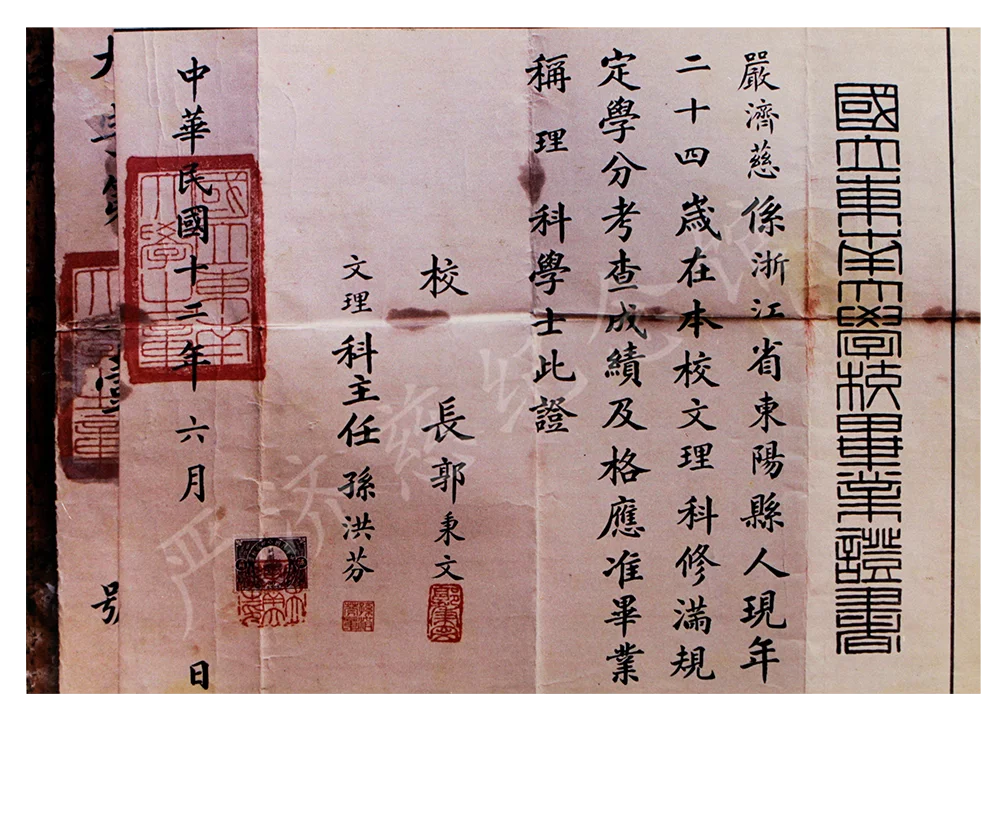 國立東南大學校畢業證書
嚴濟慈係浙江省東陽縣人現年
二十四歲在本校文理科修滿規
定學分考查成績及格應准畢業
稱理科學士此證
校長郭秉文
郭秉文
文理科主任孫洪芬
中華民國十三年六月 日
國立東南大學之章
严济慈纪念馆